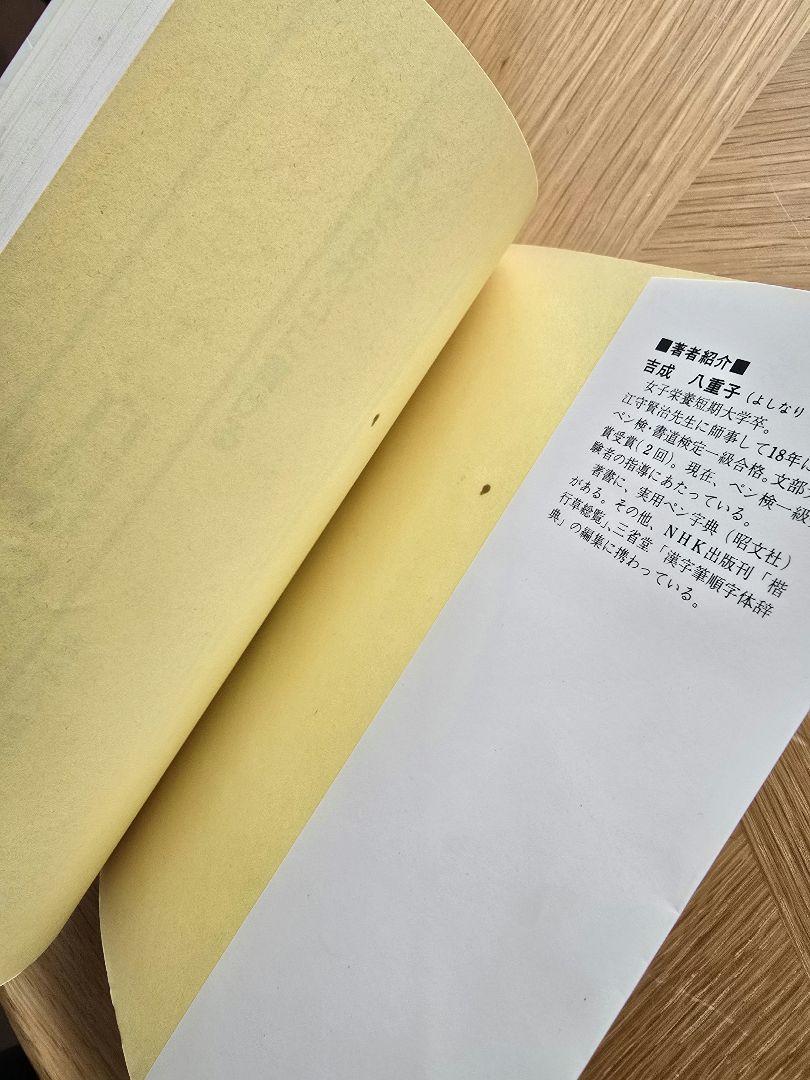 ■著者紹介■
吉成 八重子(よしなり
女子栄養短期大学卒。
江守賢治先生に師事して18年に
ペン検・書道検定一級合格。文部
賞受賞(2回)。現在、ペン検一級
験者の指導にあたっている。
著書に、実用ペン字典(昭文社)
がある。その他、NHK出版刊「楷
行草総覧」、三省堂「漢字筆順字体辞
典」の編集に携わっている。